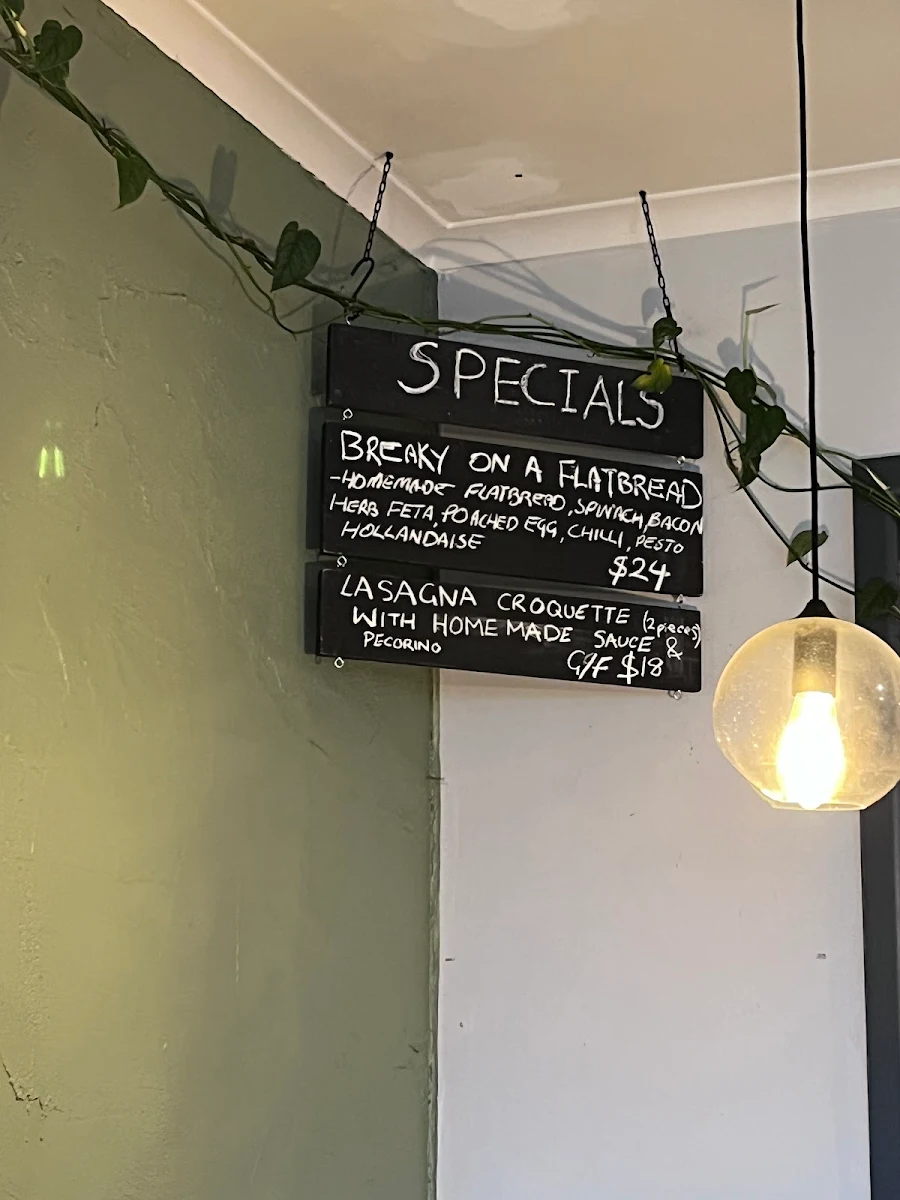 SPECIALS
BREAKY ON A FLATBREAD
-HOMEMADE FLATBREAD, SPINACH, BACON
HERB FETA, POACHED EGG, CHILLI, PESTO
HOLLANDAISE
$24
LASAGNA CROQUETTE (2 pieces)
WITH HOME MADE SAUCE &
PECORINO
G/F $18